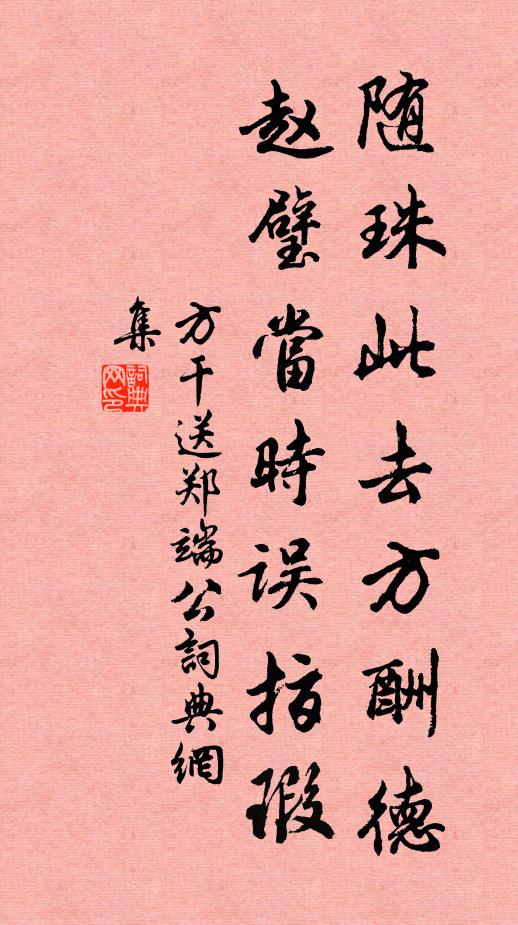 随珠此去方酬德
赵璧當時误指瑕
方干送郑端公詞典網
集
詞典网印